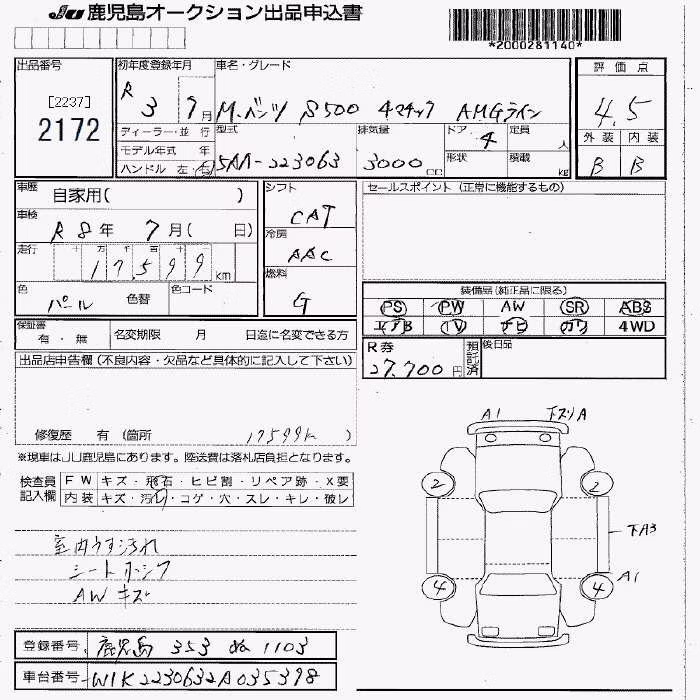 JU 鹿児島オークション出品申込書
*2000281140*
出品番号
[2237]
2172
初年度登録年月
R 3 7月
車名・グレード
M.ベンツ S500 4マチック AMGライン
評価点
4.5
外装 内装
B B
ディーラー・並行
モデル年式 年
ハンドル 左・右
型式
5AA-223063
排気量
3000 cc
ドア 4
形状
定員 人
積載 kg
車歴
自家用( )
車検
R 8 年 7 月( 日)
走行
十 万 千 百 十 一
17,599 km
色
パール
色替
色コード
シフト
CAT
冷房
AAC
燃料
G
セールスポイント(正常に機能するもの)
装備品(純正品に限る)
PS PW AW SR ABS
エアB TV ナビ カワ 4WD
保証書
有・無
名変期限 月 日迄に名変できる方
R券
27,700円
預託済
後日品
出品店申告欄(不良内容・欠品など具体的に記入して下さい)
修復歴 有(箇所 17599k )
※現車はJU鹿児島にあります。陸送費は落札店負担となります。
検査員記入欄
FW キズ・飛石・ヒビ割・リペア跡・X要
内装 キズ・汚レ・コゲ・穴・スレ・キレ・破レ
室内うす汚れ
AW キズ
A1 下スリA
2 2
下A3
A1
4 4
登録番号 鹿児島 353 ぬ 1103
車台番号 W1K2230632A035398